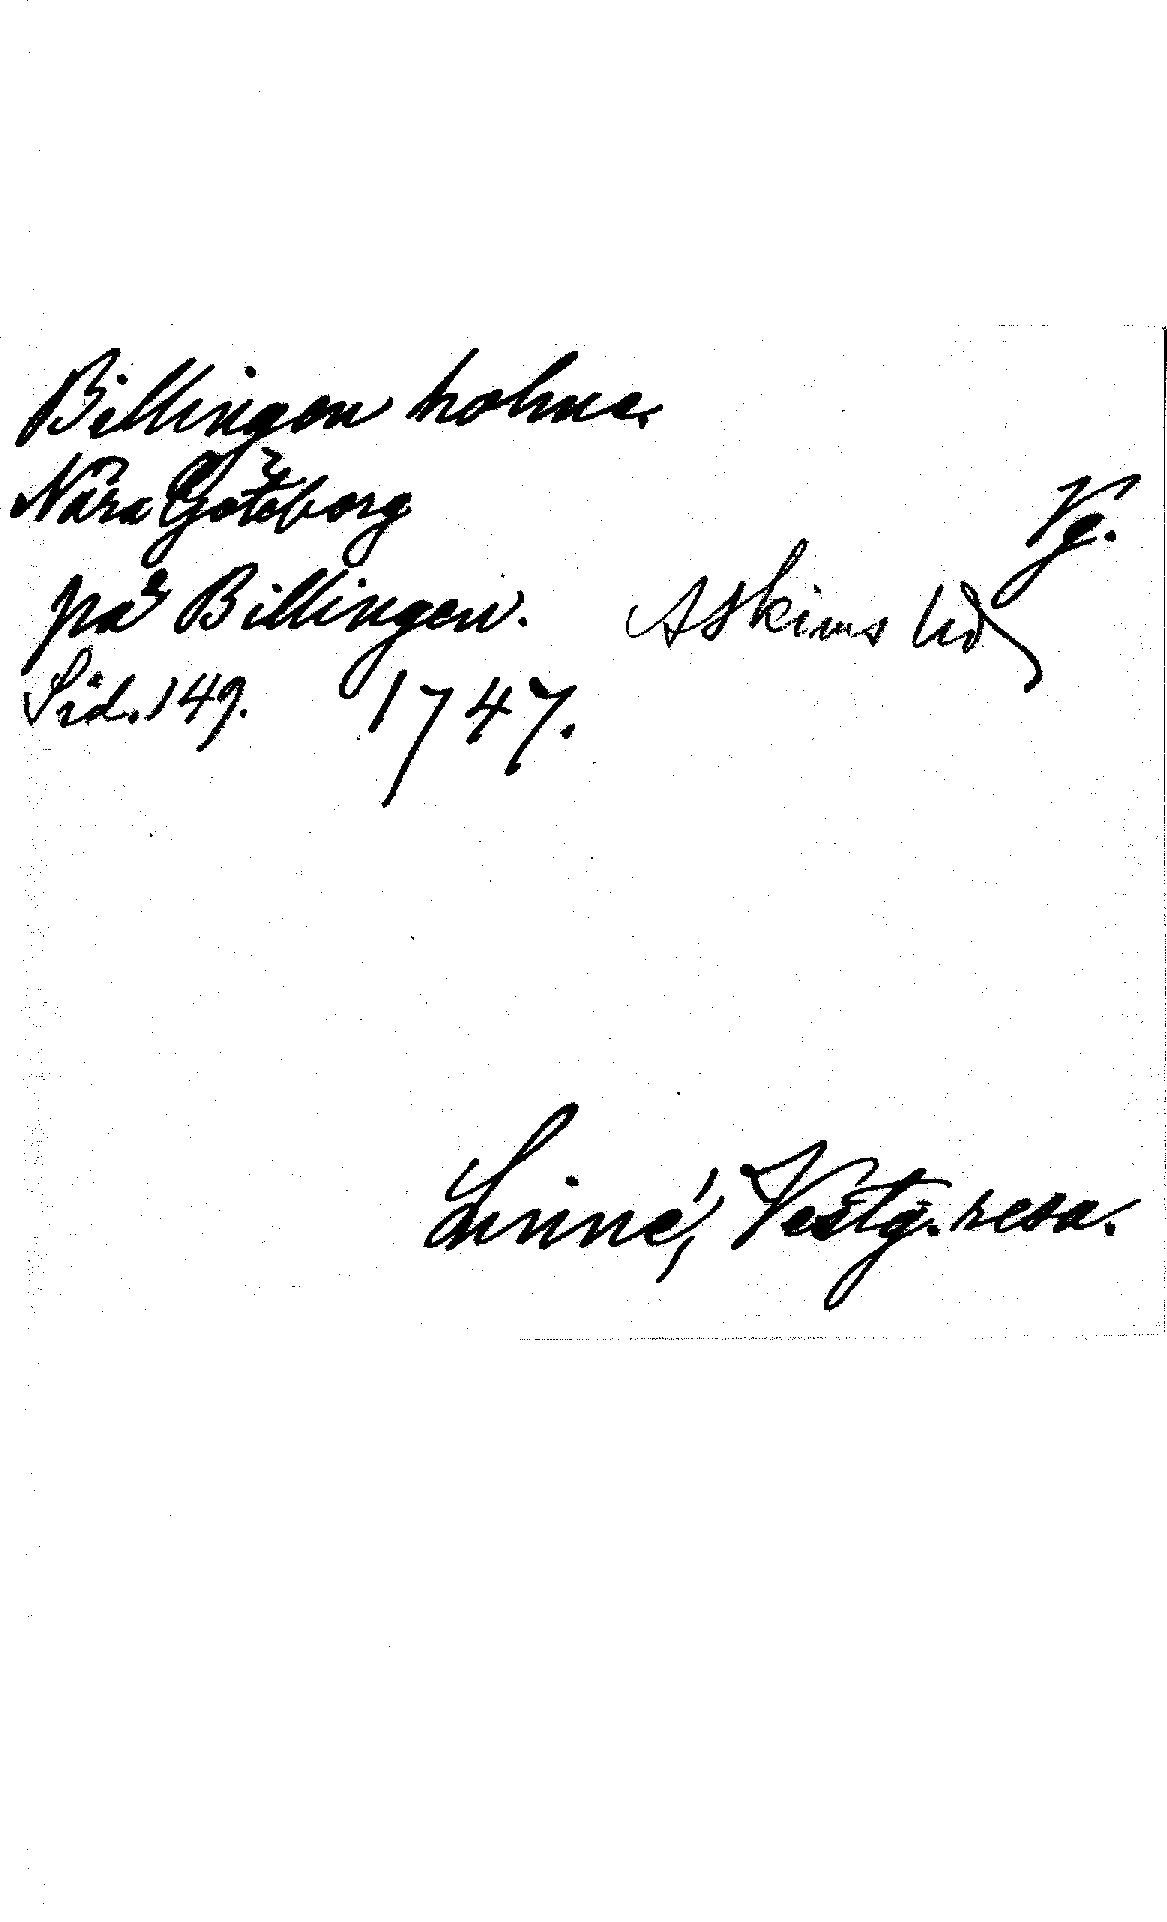 Billingen holme.
Nära Göteborg
Vg.
på Billingen. Askims hd
Sid. 149. 1747.
Linné, Vestg. resa.